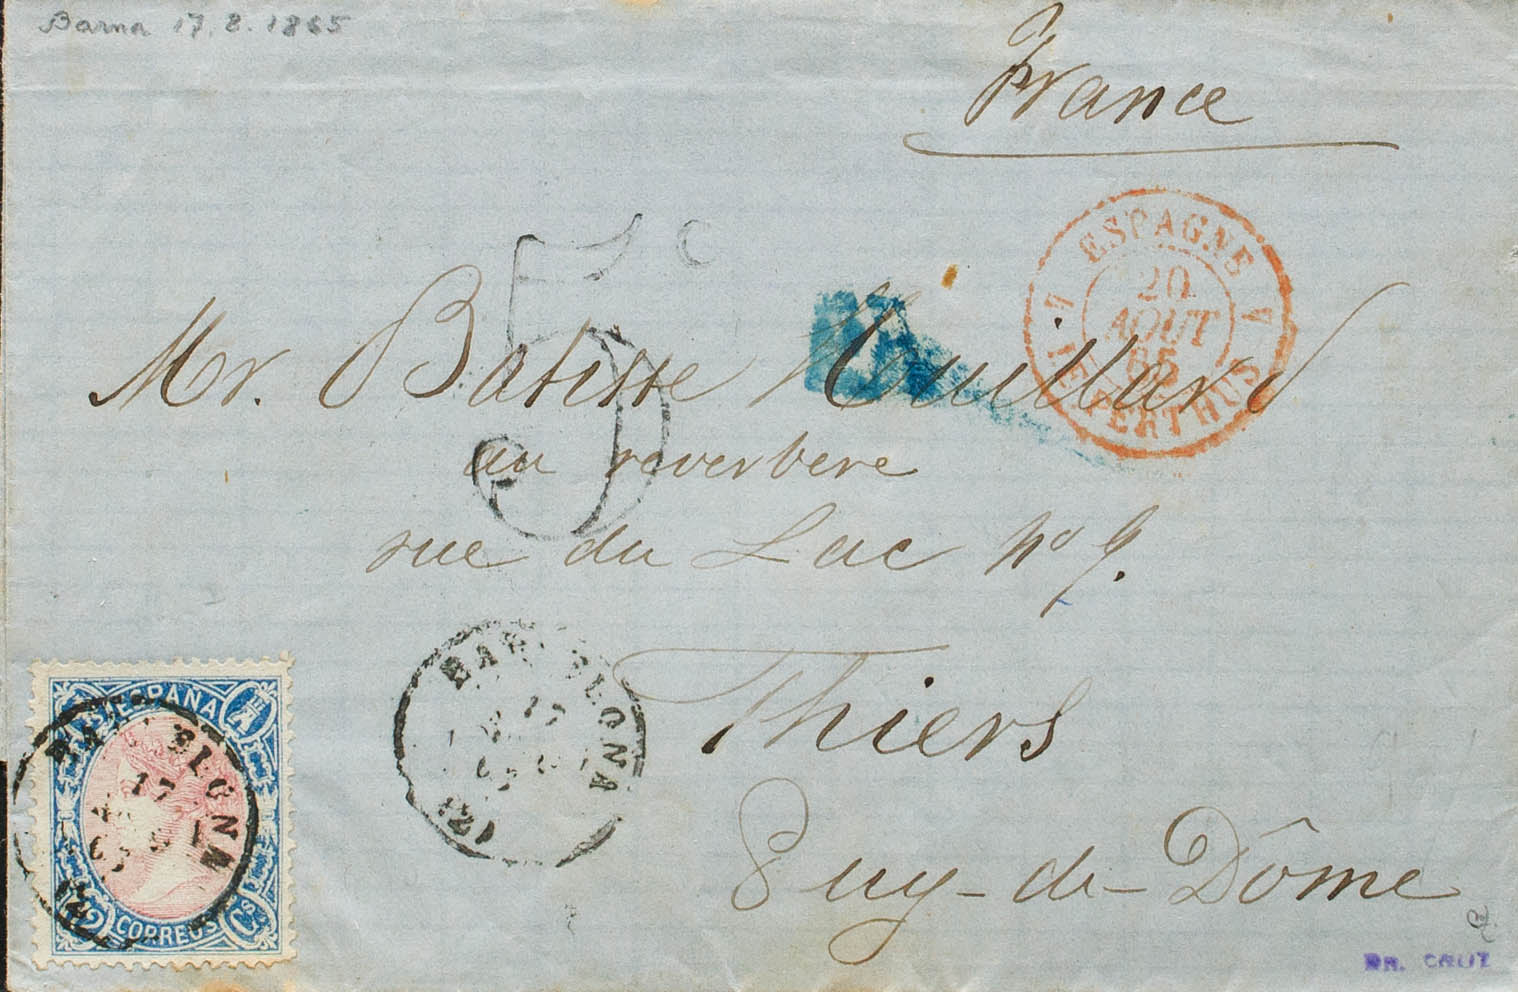 Barna 17.8.1865
France
5
Mr. Batisste Mouillard
au reverbere
rue du Lac no 9.
Thiers
Puy-de-Dôme
ESPAGNE
20
AOUT
65
LE PERTHUS
BARCELONA
17
(2)
ESPAÑA
BARCELONA
17
12 CORREOS Cs
DR. CRUZ